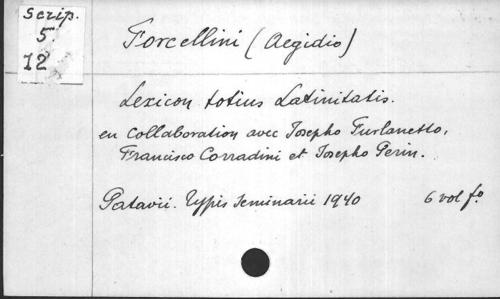 Scrip.
5.
12
Forcellini (Aegidio)
Lexicon totius Latinitatis.
en collaboration avec Josepho Furlanetto,
Francisco Corradini et Josepho Perin.
Patavii. Typis Seminarii 1940 6 vol fo.